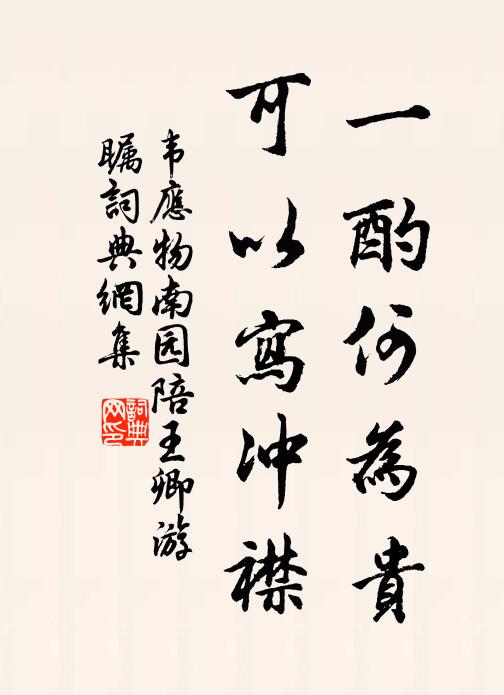 一酌何為貴
可以寫冲襟
韦應物南园陪王卿游
瞩詞典網集
詞典网印